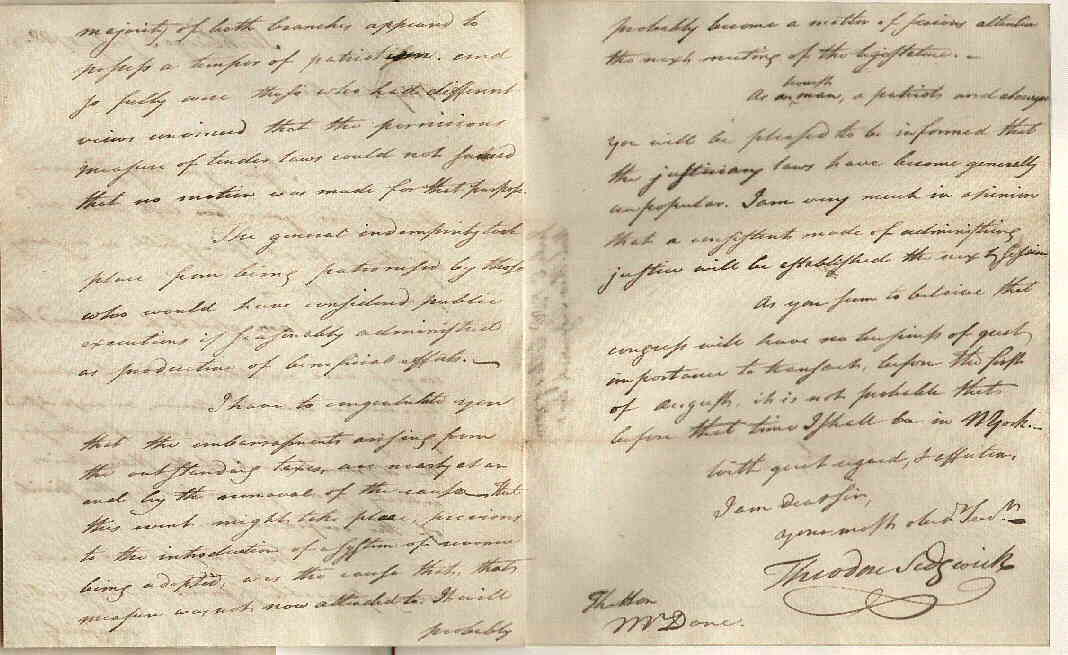 majority of both branches appeared to
possess a temper of patriotism. and
so fully were those who had different
views convinced that the pernicious
measure of tender laws could not succeed
that no motion was made for that purpose
The general indemnity took
place from being patronised by those
who would have considered public
executions if seasonably administred
as productive of beneficial effects. —
I have to congratulate you
that the embarrassments arising from
the outstanding taxes, are nearly at an
end by the removal of the cause — that
this event might take place, previous
to the introduction of a system of revenue
being adopted, was the cause that, that
measure was not now attended to. It will
probably
probably become a matter of serious attention
the next meeting of the legislature. —
As man, a patriot and
you will be pleased to be informed that
the justiciary laws have become generally
unpopular. I am very much in opinion
that a consistent mode of administring
justice will be established the next session
As you seem to beleive that
congress will have no business of great
importance to transact, before the first
of august, it is not probable that
before that time I shall be in N York. —
With great regard, & affection,
I am dear sir,
your most obed.t Serv.t
Theodore Sedgwick
The Hon
Mr Dane.